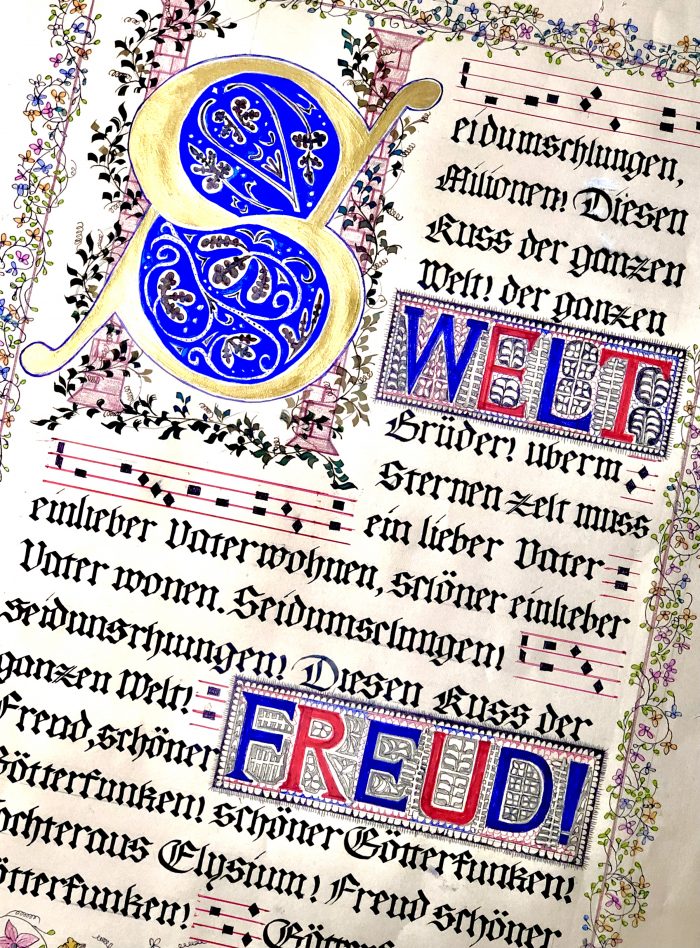 Seidumschlungen,
Milionen! Diesen
Kuss der ganzen
Welt! der ganzen
WELT
Brüder! uberm
Sternen zelt muss
ein lieber Vater
einlieber Vater wohnen, schöner einlieber
Vater wonen. Seidumsclungen!
seidunsrhiungen! Diesen Kuss der
ganzen Welt!
FREUD!
Freud, schöner
Götterfunken! schöner Götterfunken!
ochteraus Elysium! Freud schöner
ötterfunken!